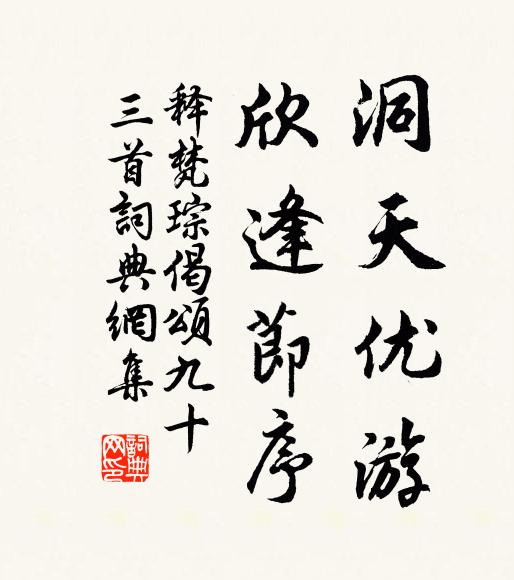 洞天优游
欣逢節序
释梵琮偈頌九十
三首詞典網集
詞典
网印